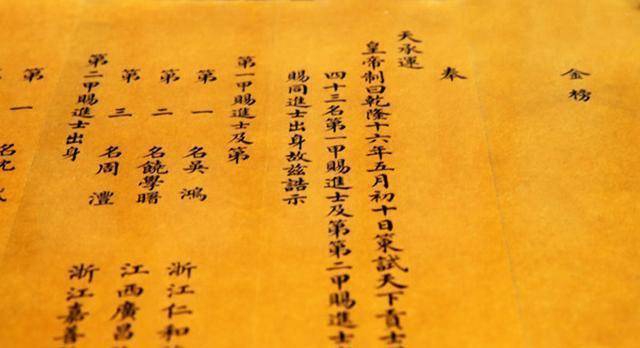 金榜
奉
天承運
皇帝制曰乾隆十六年五月初十日策試天下貢士
四十三名第一甲賜進士及第第二甲賜進士
賜同進士出身故茲誥示
第一甲賜進士及第
第一名吳鴻 浙江仁和
第二名饒學曙 江西廣昌
第三名周澧 浙江嘉善
第二甲賜進士出身
第一名沈